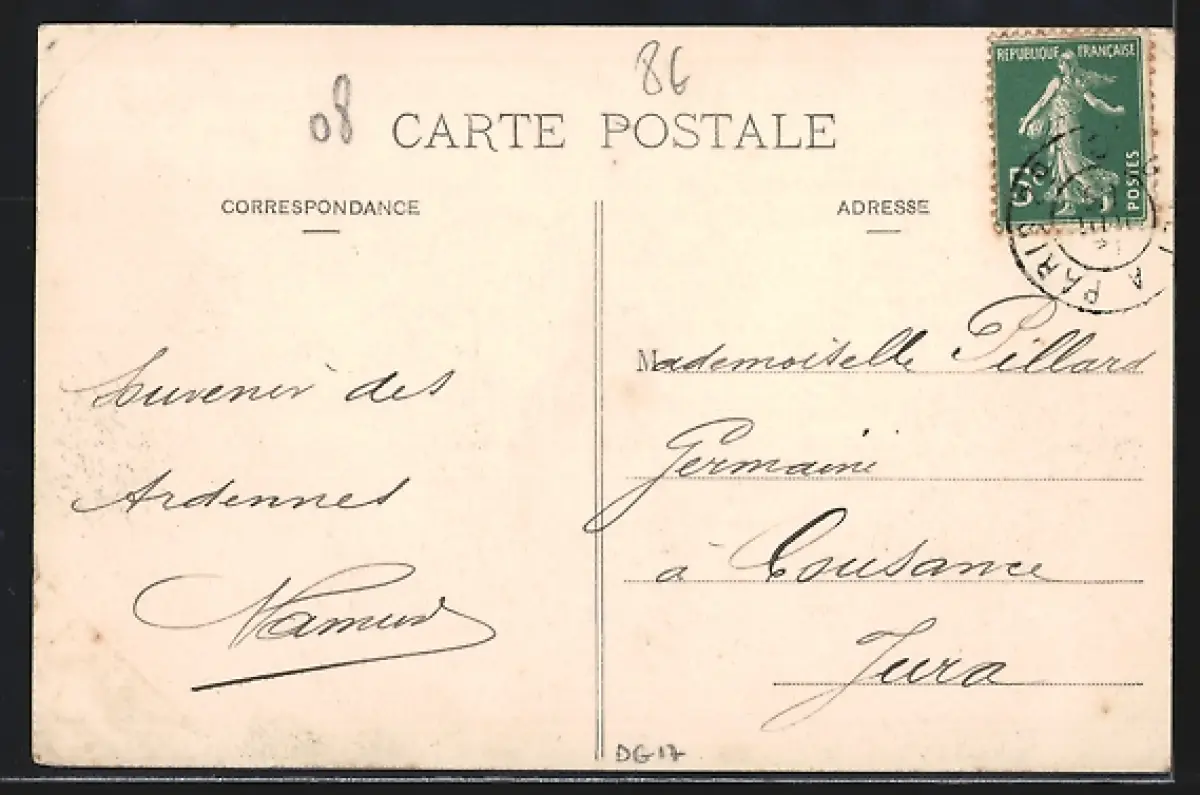 86
08
CARTE POSTALE
CORRESPONDANCE
ADRESSE
RÉPUBLIQUE FRANÇAISE
POSTES
5
A PARIS
Souvenir des
Ardennes
Namur
Mademoiselle Pillard
Germaine
à Cousance
Jura
DG17